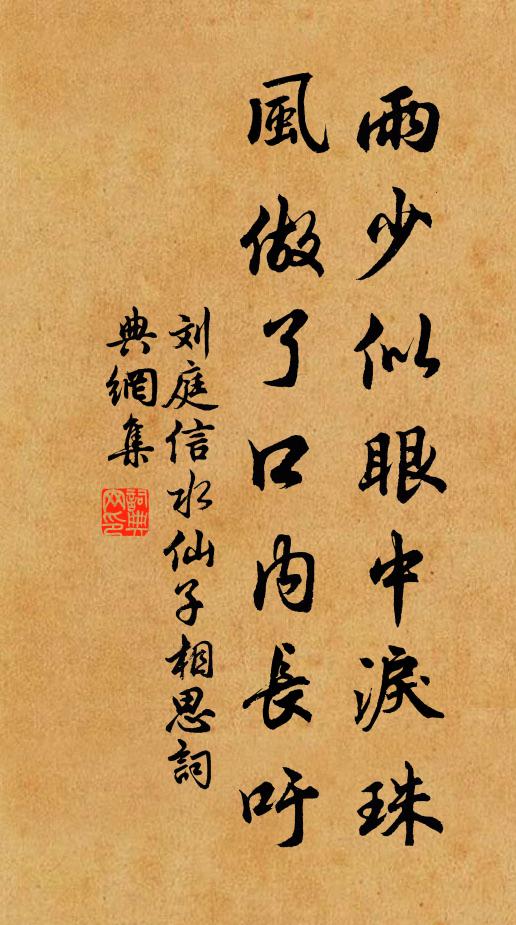 雨少似眼中淚珠
風做了口內長吁
刘庭信水仙子相思詞
典網集
詞典网印